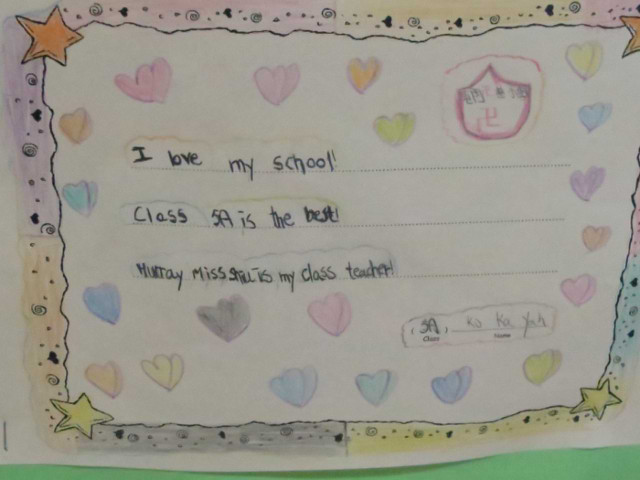 I love my school!
Class 5A is the best!
Murray Miss is my class teacher!
( 5A ) Ko Ka Yah
Class Name